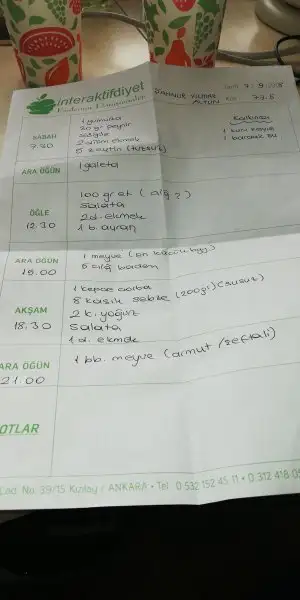 interaktifdiyet
Tarih 7.9.
Kilo 77.5
SABAH
7.30
1 yumurta
30 gr peynir
2 dilim ekmek
5 zeytin (tuzsuz)
1 kuru meyve
1 bardak su
ARA ÖĞÜN
1 galeta
ÖĞLE
12.30
100 gr et
salata
2 d. ekmek
1 b. ayran
ARA ÖĞÜN
15.00
1 meyve
5 çiğ badem
AKŞAM
18.30
1 kepçe çorba
8 kaşık sebze (200 gr)
2 k. yoğurt
salata
1 d. ekmek
ARA ÖĞÜN
21.00
1 bb. meyve (armut / şeftali)
NOTLAR
Cad. No: 39/15 Kızılay / ANKARA • Tel: 0 532 152 45 11 • 0 312 418 0